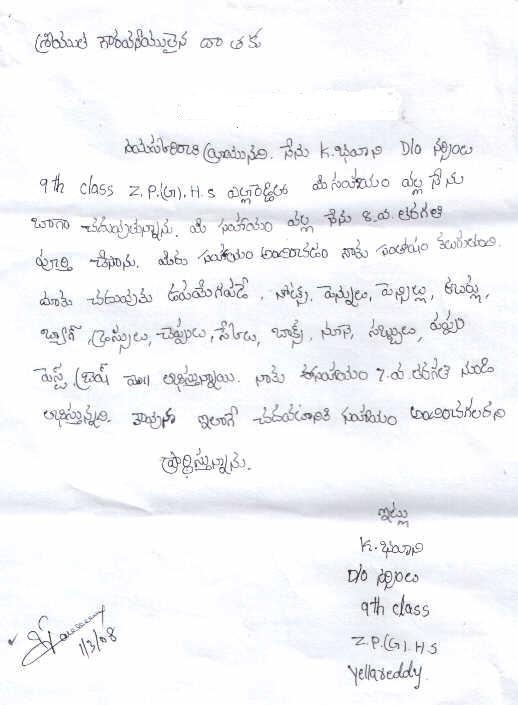 శ్రీయుత గౌరవనీయులైన దాతకు
నమస్కరించి వ్రాయునది. నేను K. భవాని D/o నర్సింలు
9th class Z.P.(G).H.S ఎల్లారెడ్డి మీ సహాయం వల్ల నేను
బాగా చదువుతున్నాను. మీ సహాయం వల్ల నేను 8.వ. తరగతి
పూర్తి చేసాను. మీరు సహాయం అందించడం నాకు సంతోషం కలుగుతుంది.
మాకు చదువుకు ఉపయోగపడే, నోట్స్, పెన్నులు, పెన్సిల్లు, కంబళ్లు,
బ్యాగ్, డ్రెస్సులు, చెప్పులు, స్కేలు, బాక్స్, నూనె, సబ్బులు,
పేస్ట్ బ్రష్ లభిస్తున్నాయి. నాకు ఈ సహాయం 7.వ తరగతి నుండి
లభిస్తున్నది. ఇలాగే చదవటానికి సహాయం అందించగలరని
ప్రార్థిస్తున్నాను.
ఇట్లు
K. భవాని
D/o నర్సింలు
9th class
Z.P.(G).H.S
Yellareddy.
1/3/08